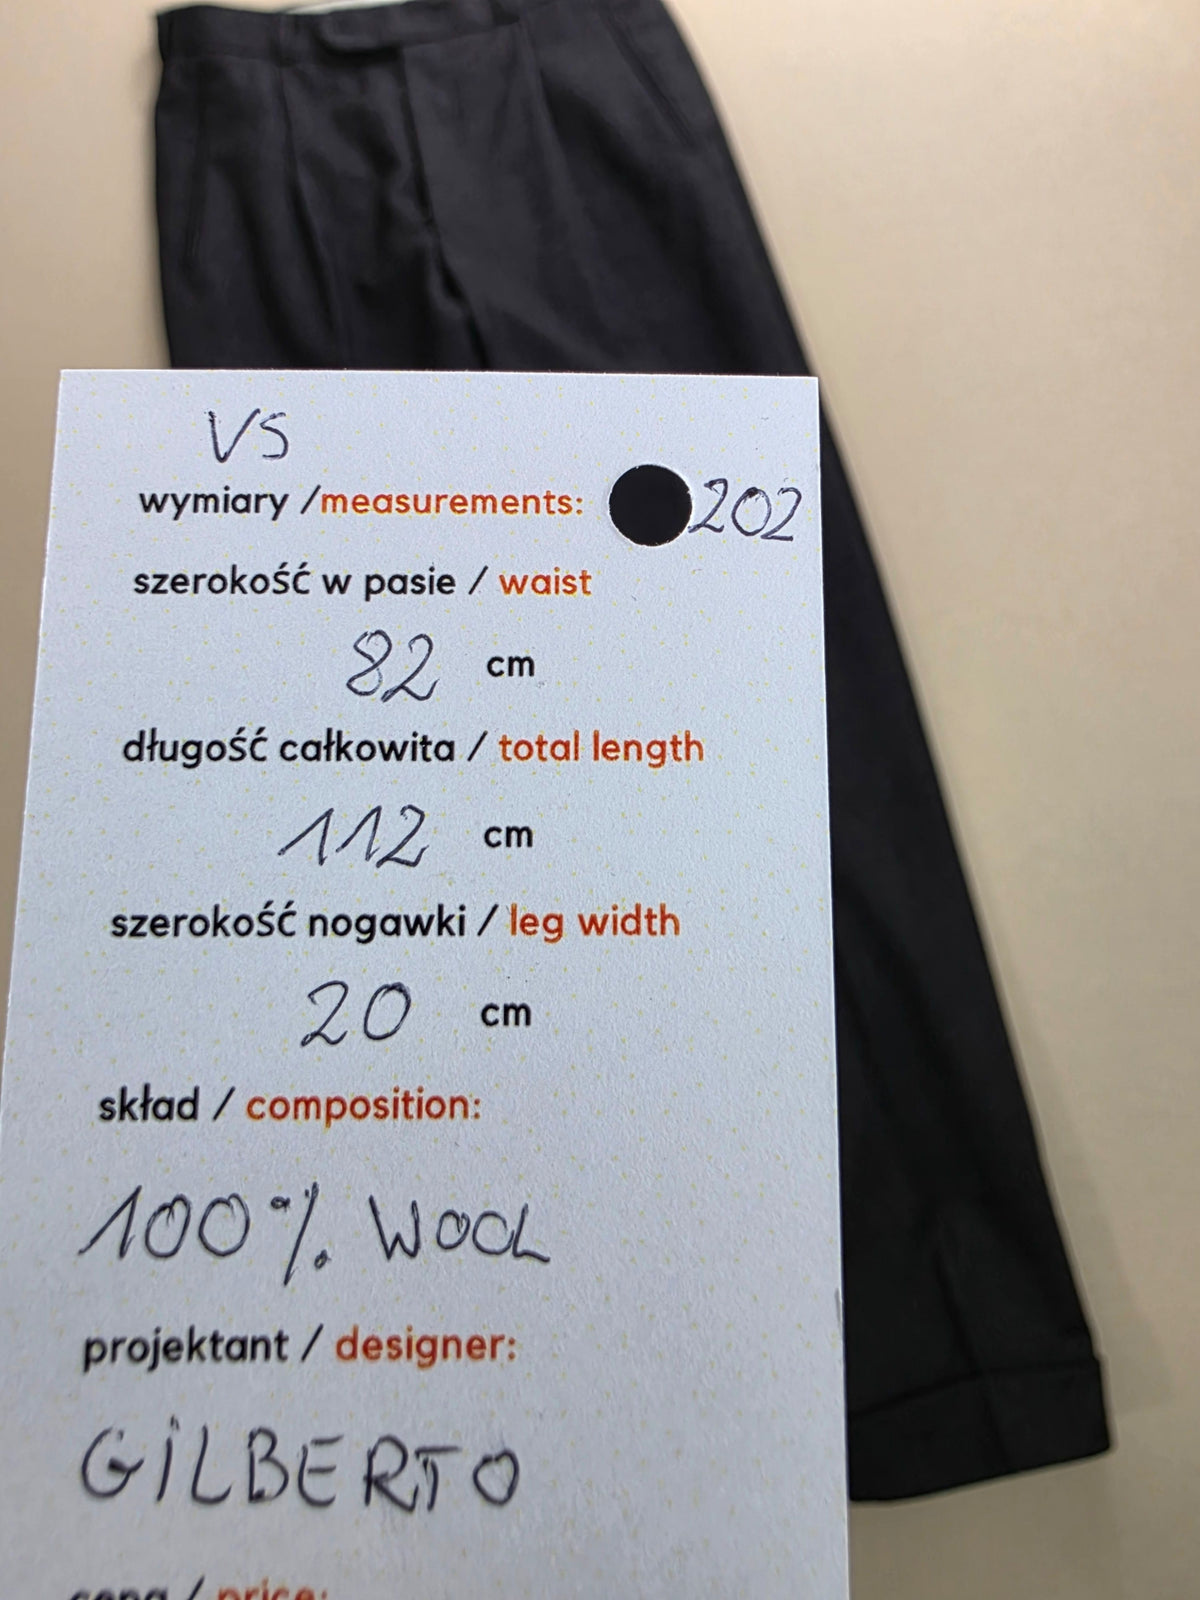 VS
wymiary /measurements: 202
szerokość w pasie / waist
82 cm
długość całkowita / total length
112 cm
szerokość nogawki / leg width
20 cm
skład / composition:
100% WOOL
projektant / designer:
GILBERTO
cena / price: